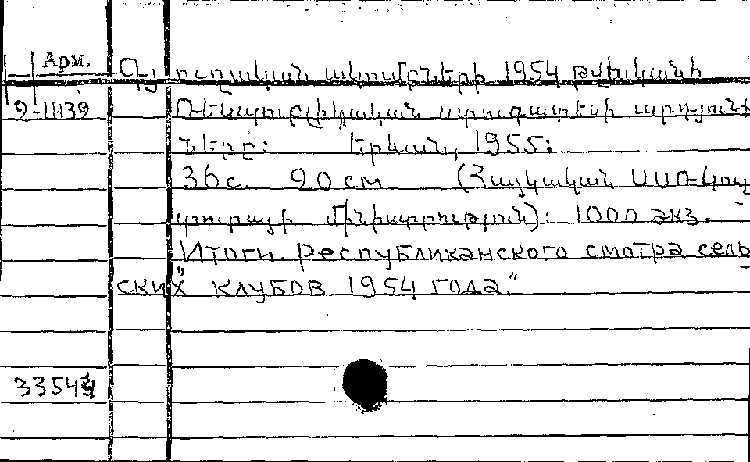 Арм.
Գյուղական ակումբների 1954 թվականի
9-11139
Ռեսպուբլիկական ստուգատեսի արդյունք
ները: Երևան, 1955:
36 с. 20 см (Հայկական ՍՍՌ Կուլ
տուրայի մինիստրություն): 1000 экз.
"Итоги республиканского смотра сель
ских клубов 1954 года."